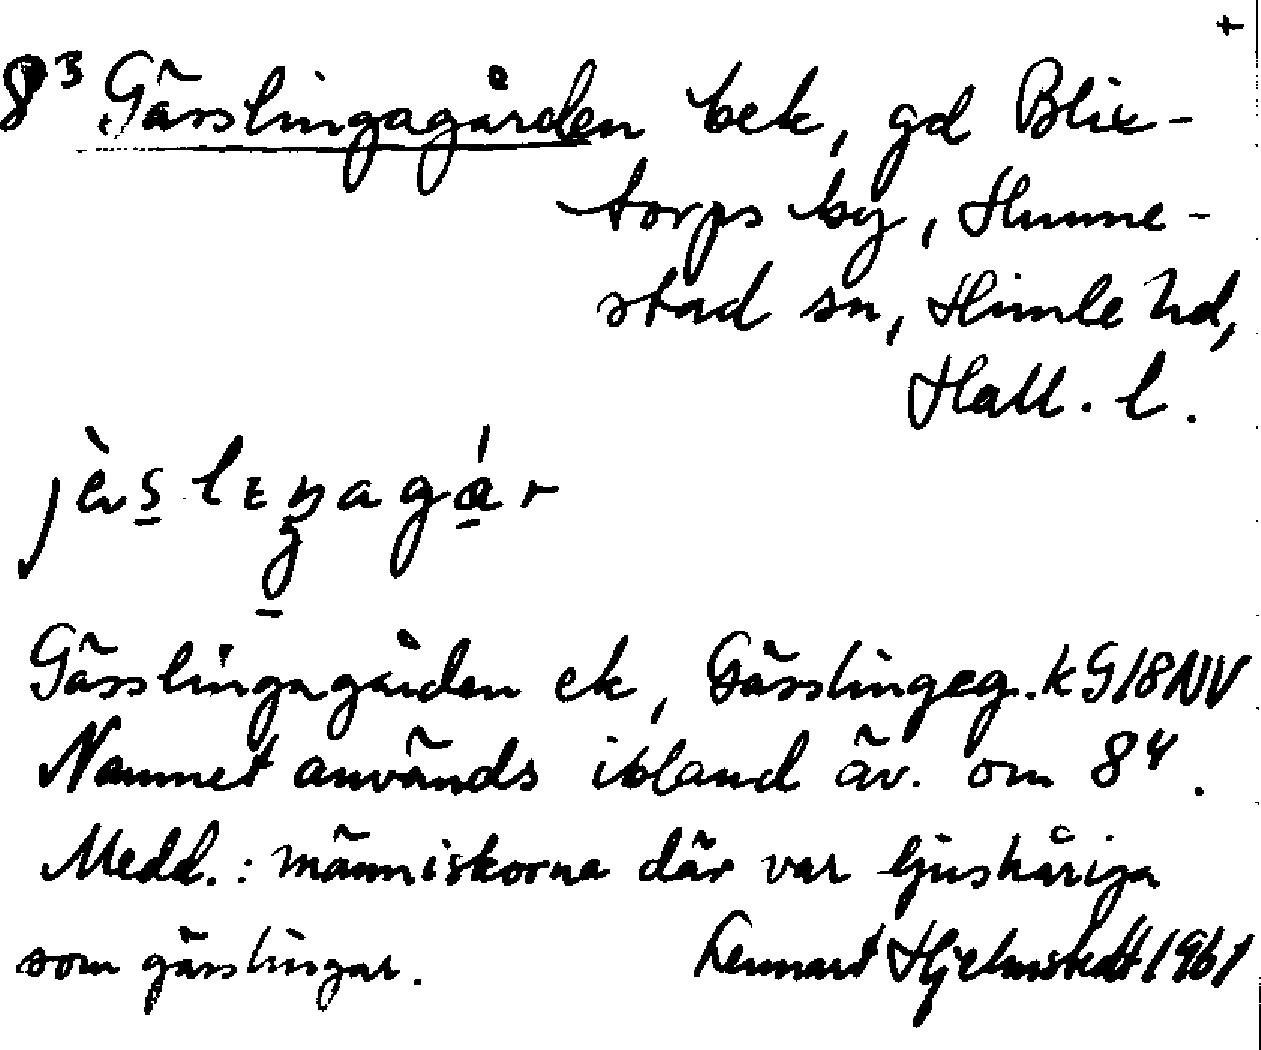 +
8³ Gässlingagården bek, gd Blix-
torps by, Hunne-
stad sn, Himle hd,
Hall. l.
Gässlingagården ek, Gässlingeg. kG18NV
Namnet används ibland äv. om 8⁴.
Medd.: människorna där var ljushåriga
som gässlingar. Lennart Hjelmstedt 1961